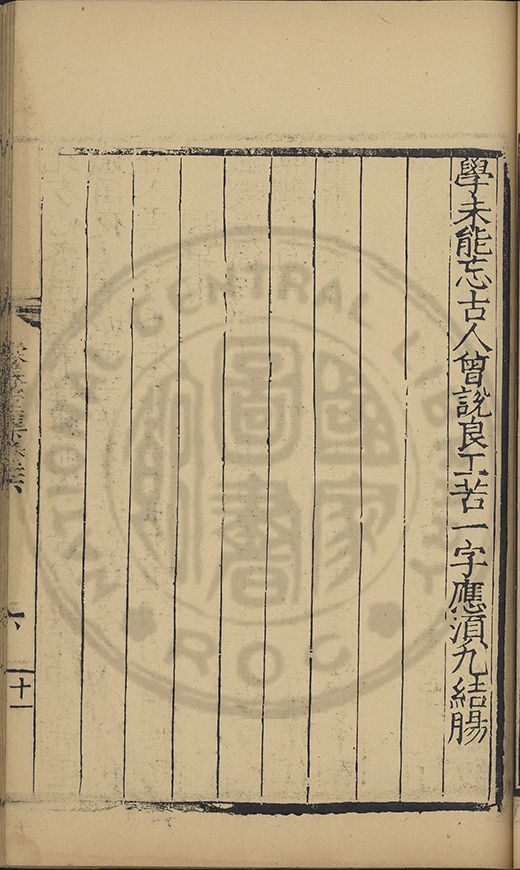 學未能忘古人曾說良工苦一字應須九結腸
十一
NATIONAL CENTRAL LIBRARY
ROC
國家圖書館